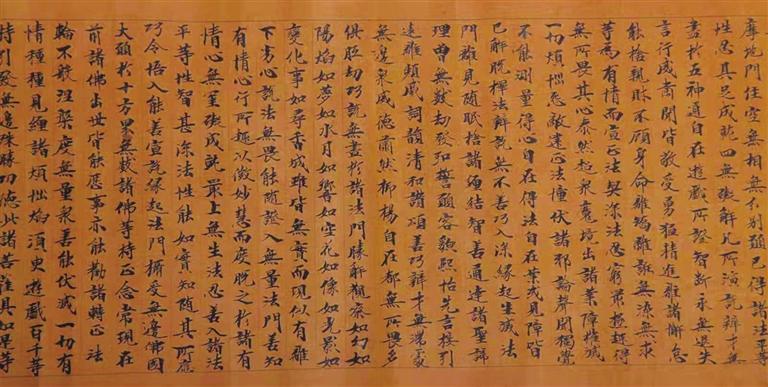 摩地門住空無相無分別願已得諸法平等
性忍具足成就四無礙解凡所演說辯才無
盡於五神通自在遊戲所證智斷永無退失
言行威肅聞皆敬受勇猛精進離諸懈怠
能捨親財不顧身命離矯離誑無染無求
等為有情而宣正法契深法忍窮最極趣得
無所畏其心泰然超眾魔境出諸業障摧滅
一切煩惱怨敵建正法幢伏諸邪論聲聞獨覺
不能測量得心自在得法自在業惑見障皆
已解脫擇法辯說無不善巧入深緣起生滅法
門離見隨眠捨諸纏結智善通達諸聖諦
理曾無數劫發弘誓願容貌熙怡先言挹引
遠離頻蹙詞韻清和讚頌善巧辯才無滯處
無邊眾威德肅然抑揚自在都無所畏多
俱胝劫巧說無盡於諸法門勝解觀察如幻如
陽焰如夢如水月如響如空花如像如光影如
變化事如尋香城雖皆無實而現似有離
下劣心說法無畏能隨證入無量法門善知
有情心行所趣以微妙慧而度脫之於諸有
情心無罣礙成就最上無生法忍善入諸法
平等性智甚深法性能如實知隨其所應
巧令悟入能善宣說緣起法門攝受無邊佛國
大願於十方界無數諸佛等持正念常現在
前諸佛出世皆能歷事亦能勸請轉正法
輪不般涅槃度無量眾善能伏滅一切有
情種種見纏諸煩惱焰須臾遊戲百千等
持引發無邊殊勝功德此諸菩薩具如是等